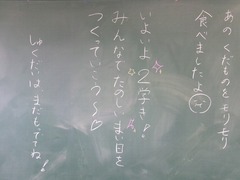 あの くだものをモリモリ
食べましたよ
いよいよ 2学き!
みんなでたのしいまい日を
つくっていこう〜♡
しゅくだいは まだもですね!